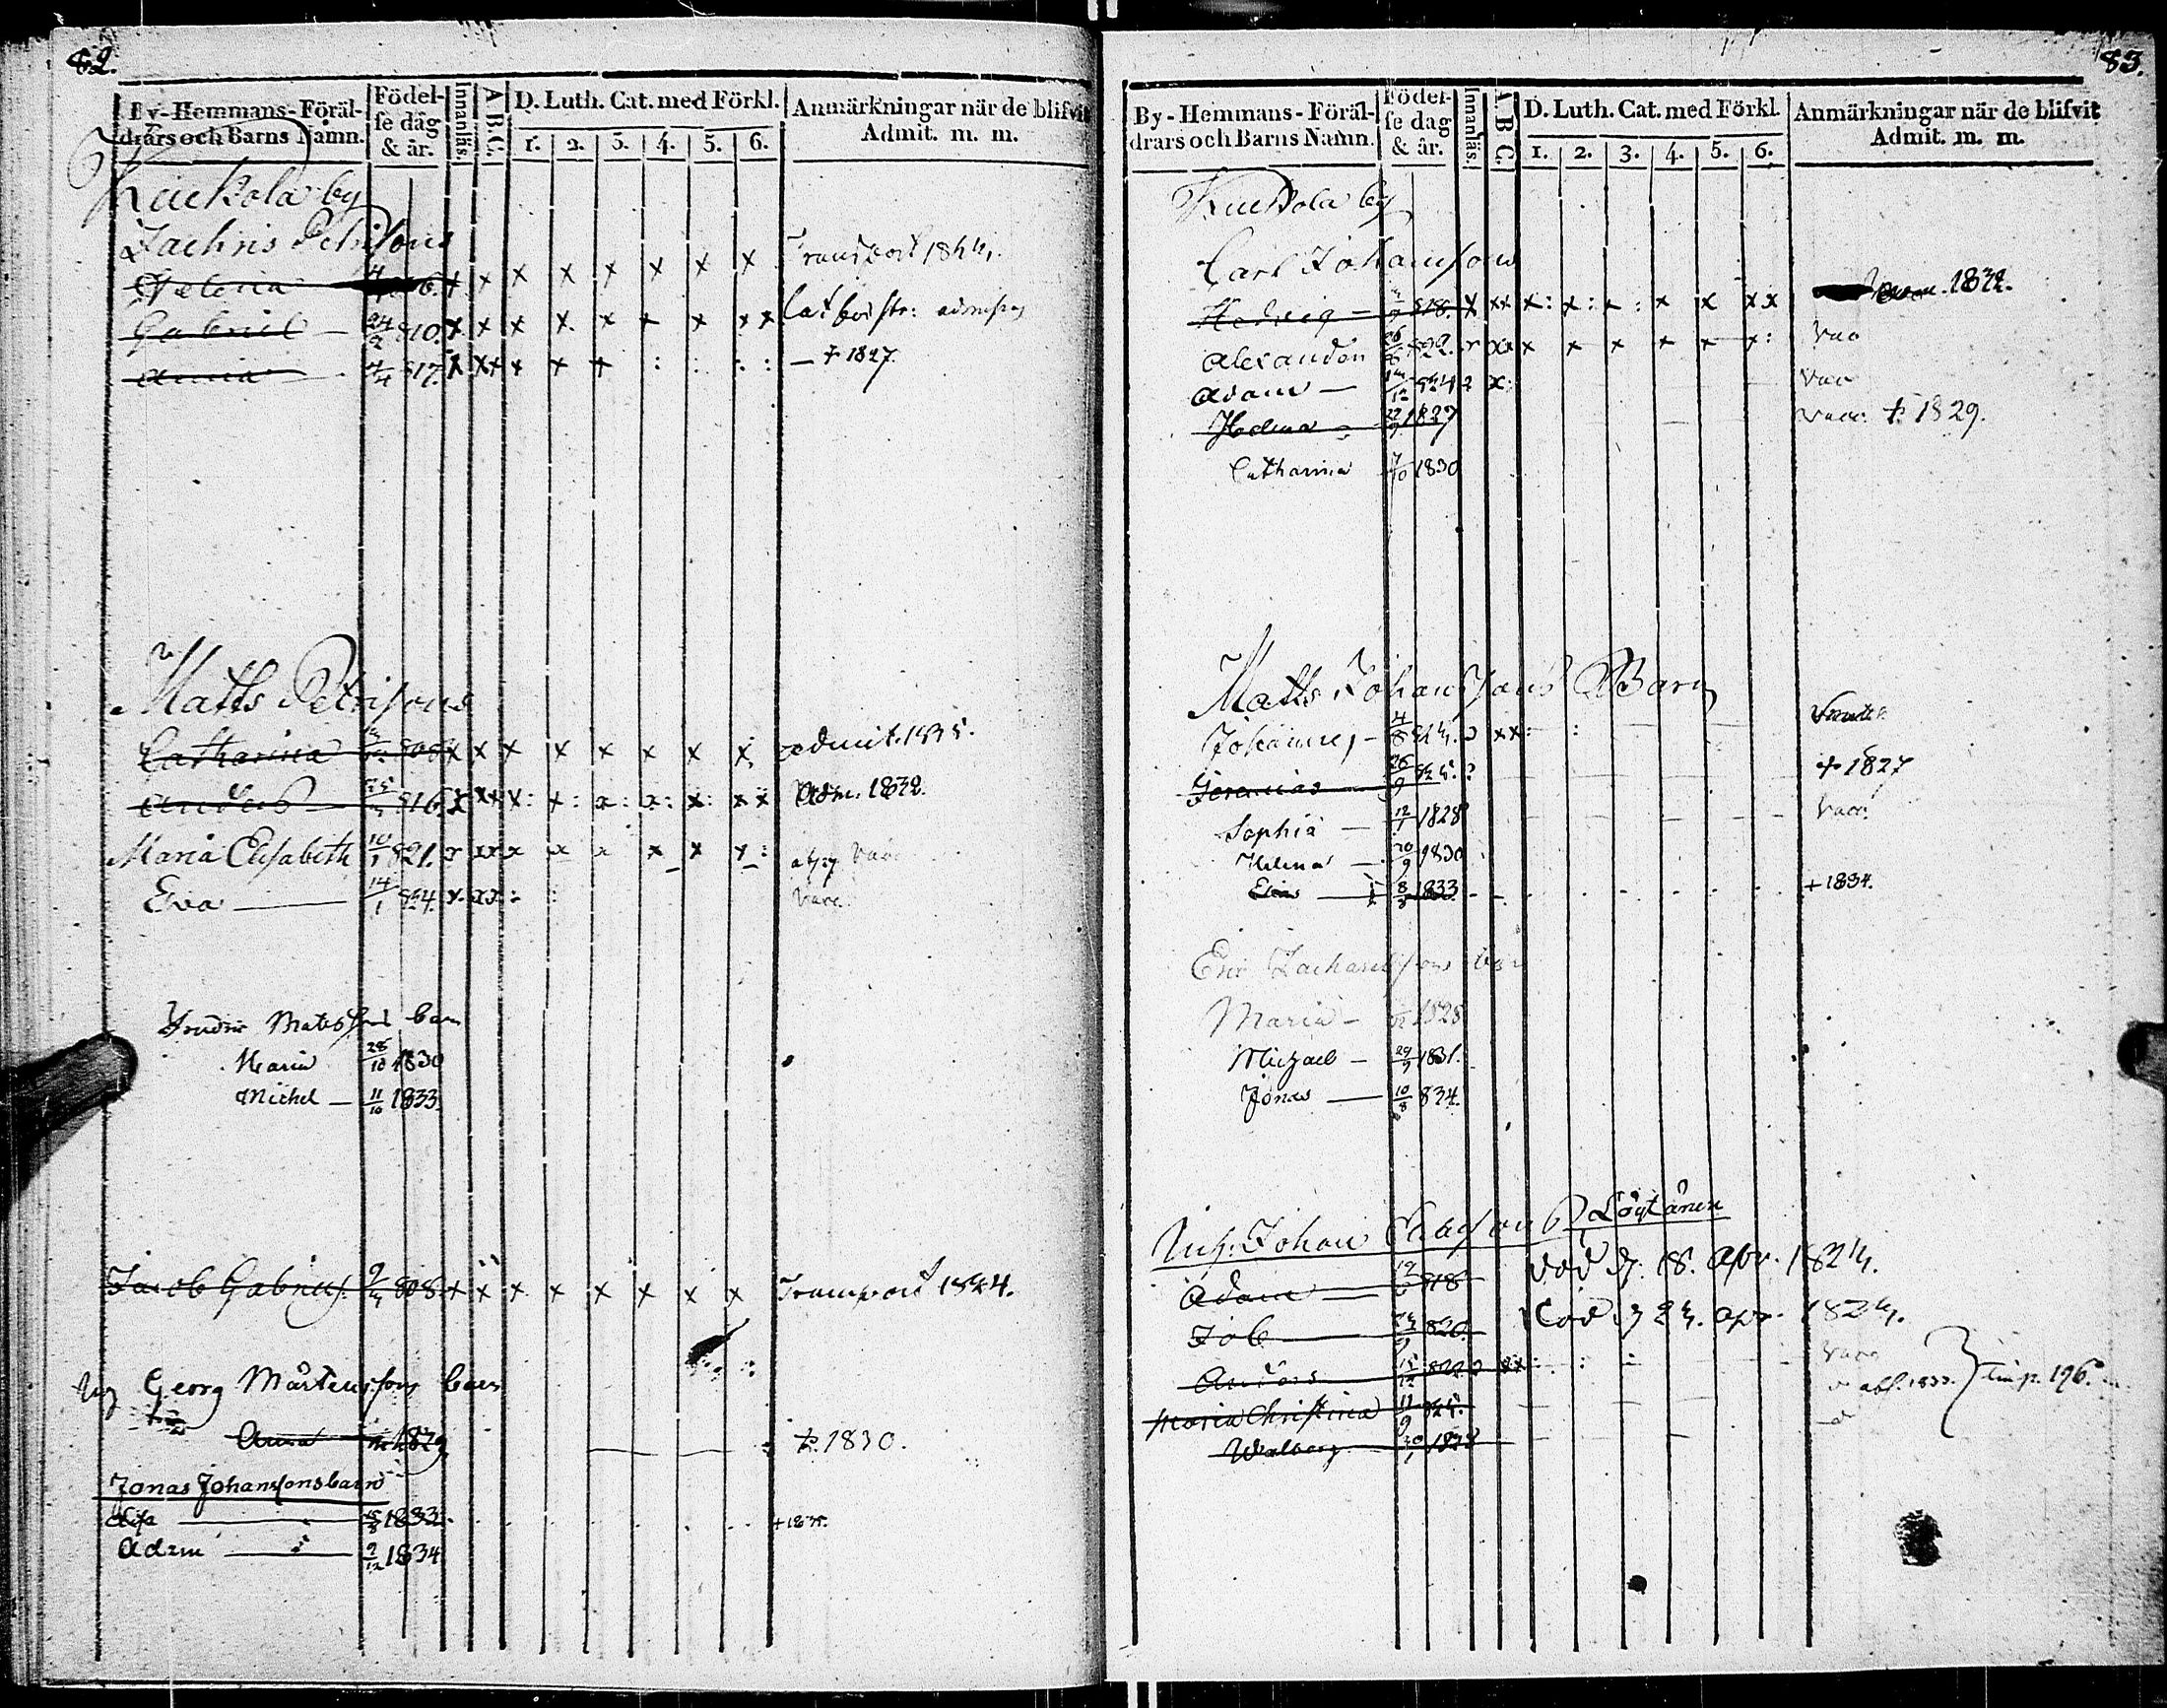 82.
By-Hemmans-Föräl-
drars och Barns Namn.
Födel-
se dag
& år.
Innanläs.
A B C.
D. Luth. Cat. med Förkl.
1. 2. 3. 4. 5. 6.
Anmärkningar när de blifvit
Admit. m. m.
Kuckola by
Zachris Petrisons
Helena x x x x x x x x Transport 1824.
Gabriel 24/2 810. x x x x. x x x xx
Anna 4/4 817. x xx x x x : : : : — † 1827.
Matts Petrisons
Catharina 808 x x x x x x x x admit. 1825.
Anders 816. x xx x: x: x: x: x: xx Adm. 1832.
Maria Elisabeth 10/1 821. x xx x x x x x x: vacc
Eva — 14/1 824. x xx : : Vacc.
Matssons barn
Maria 28/10 1830
Michel — 11/10 1833.
Jacob Gabriels. 808 x x x x x x x x Transport 1824.
Georg Mårtensons barn
Anna 1829 †. 1830.
Jonas Johansons barn
Lisa — 1833 + 1835.
Adam — 9/12 1834
83.
By-Hemmans-Föräl-
drars och Barns Namn.
Födel-
se dag
& år.
Innanläs.
A B C.
D. Luth. Cat. med Förkl.
1. 2. 3. 4. 5. 6.
Anmärkningar när de blifvit
Admit. m. m.
Kuckola by
Carl Johansons
Hedvig — 818. x xx x: x: x: x x xx 1832.
Alexander 822. xx x x x x x x: Vac
Adam — 824 x: Vac
Helena — 22/9 1827 Vacc. †. 1829.
Catharina 7/10 1830
Matts Johansons Barn
Johannes — 4/8 xx: :
Jeremias 26/9 825. † 1827
Sophia — 12/1 1828 Vacc.
Helena — 20/9 1830
8/3 1833 + 1834.
Eric Zachariasons barn
Maria — 1828
Michael — 29/9 1831.
Jonas — 10/8 834.
Inh. Johan Löytänen
Adam — 818 död d. 18. Apr. 1824.
Job — 820. död d 24. apr. 1824.
Anders 15/12 822 xx: : : Vacc
Maria Christina 11/9 825. p. 196.
Walborg 20/1 1828